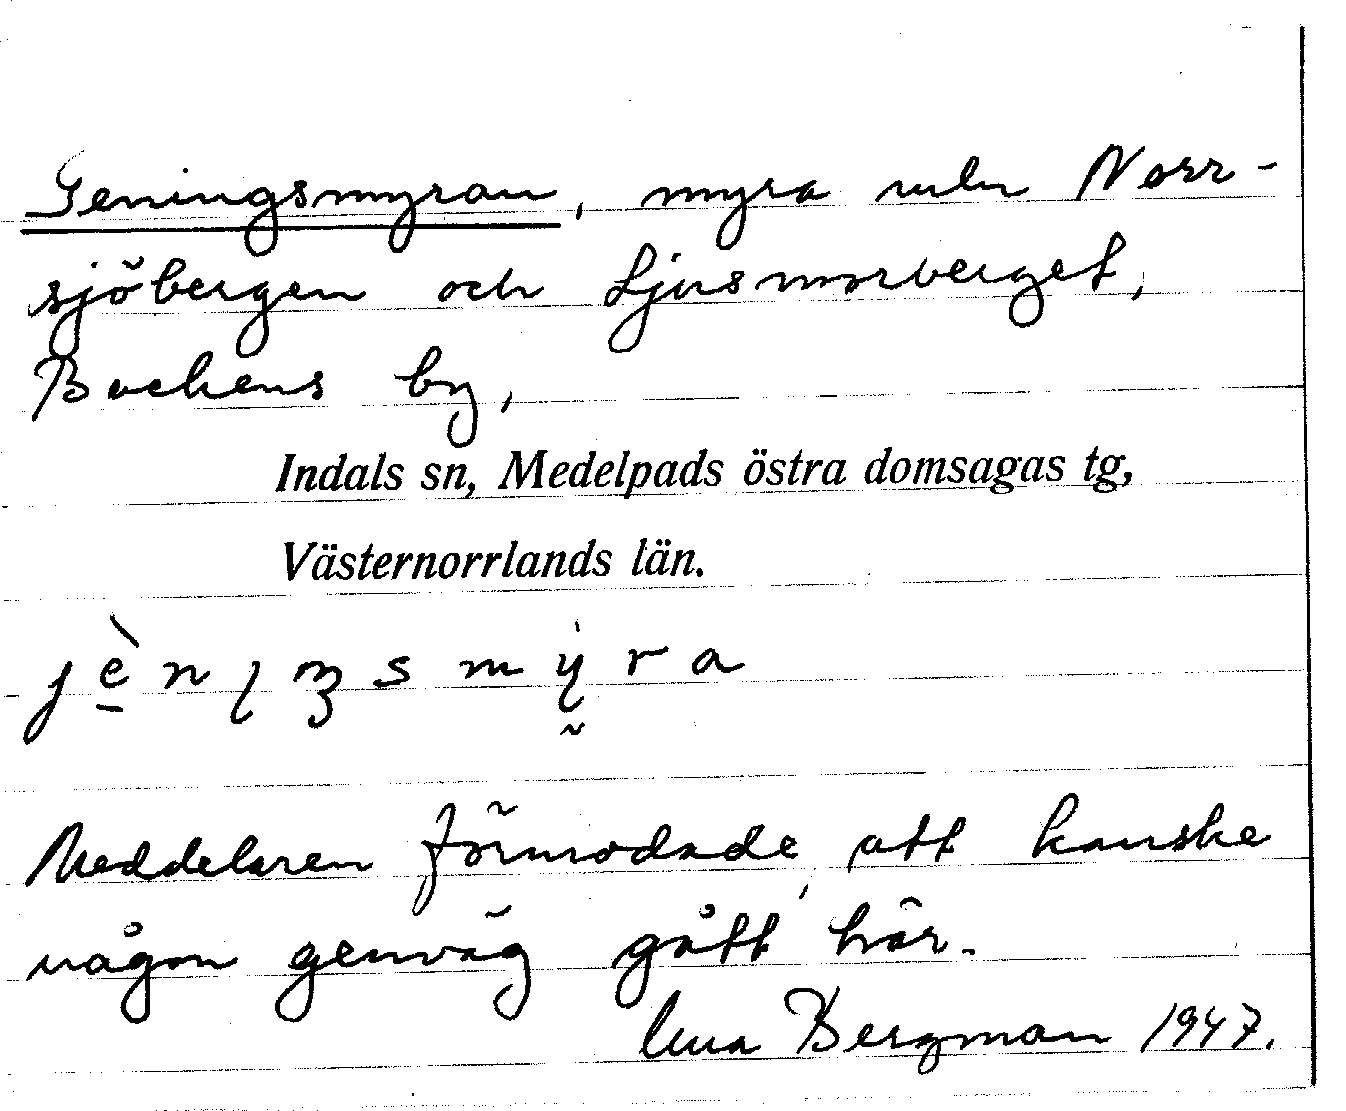 Geningsmyran, myra mln Norr-
sjöbergen och Ljusmorberget,
Backens by,
Indals sn, Medelpads östra domsagas tg,
Västernorrlands län.
Meddelaren förmodade, att kanske
någon genväg gått här.
Bergman 1947.